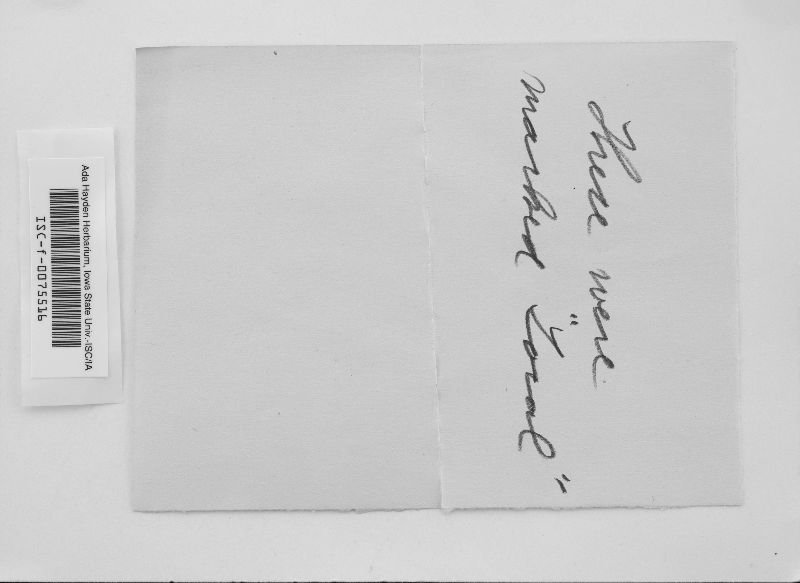 These were
marked "Local"
Ada Hayden Herbarium, Iowa State Univ.-ISC/IA
ISC-f-0075516